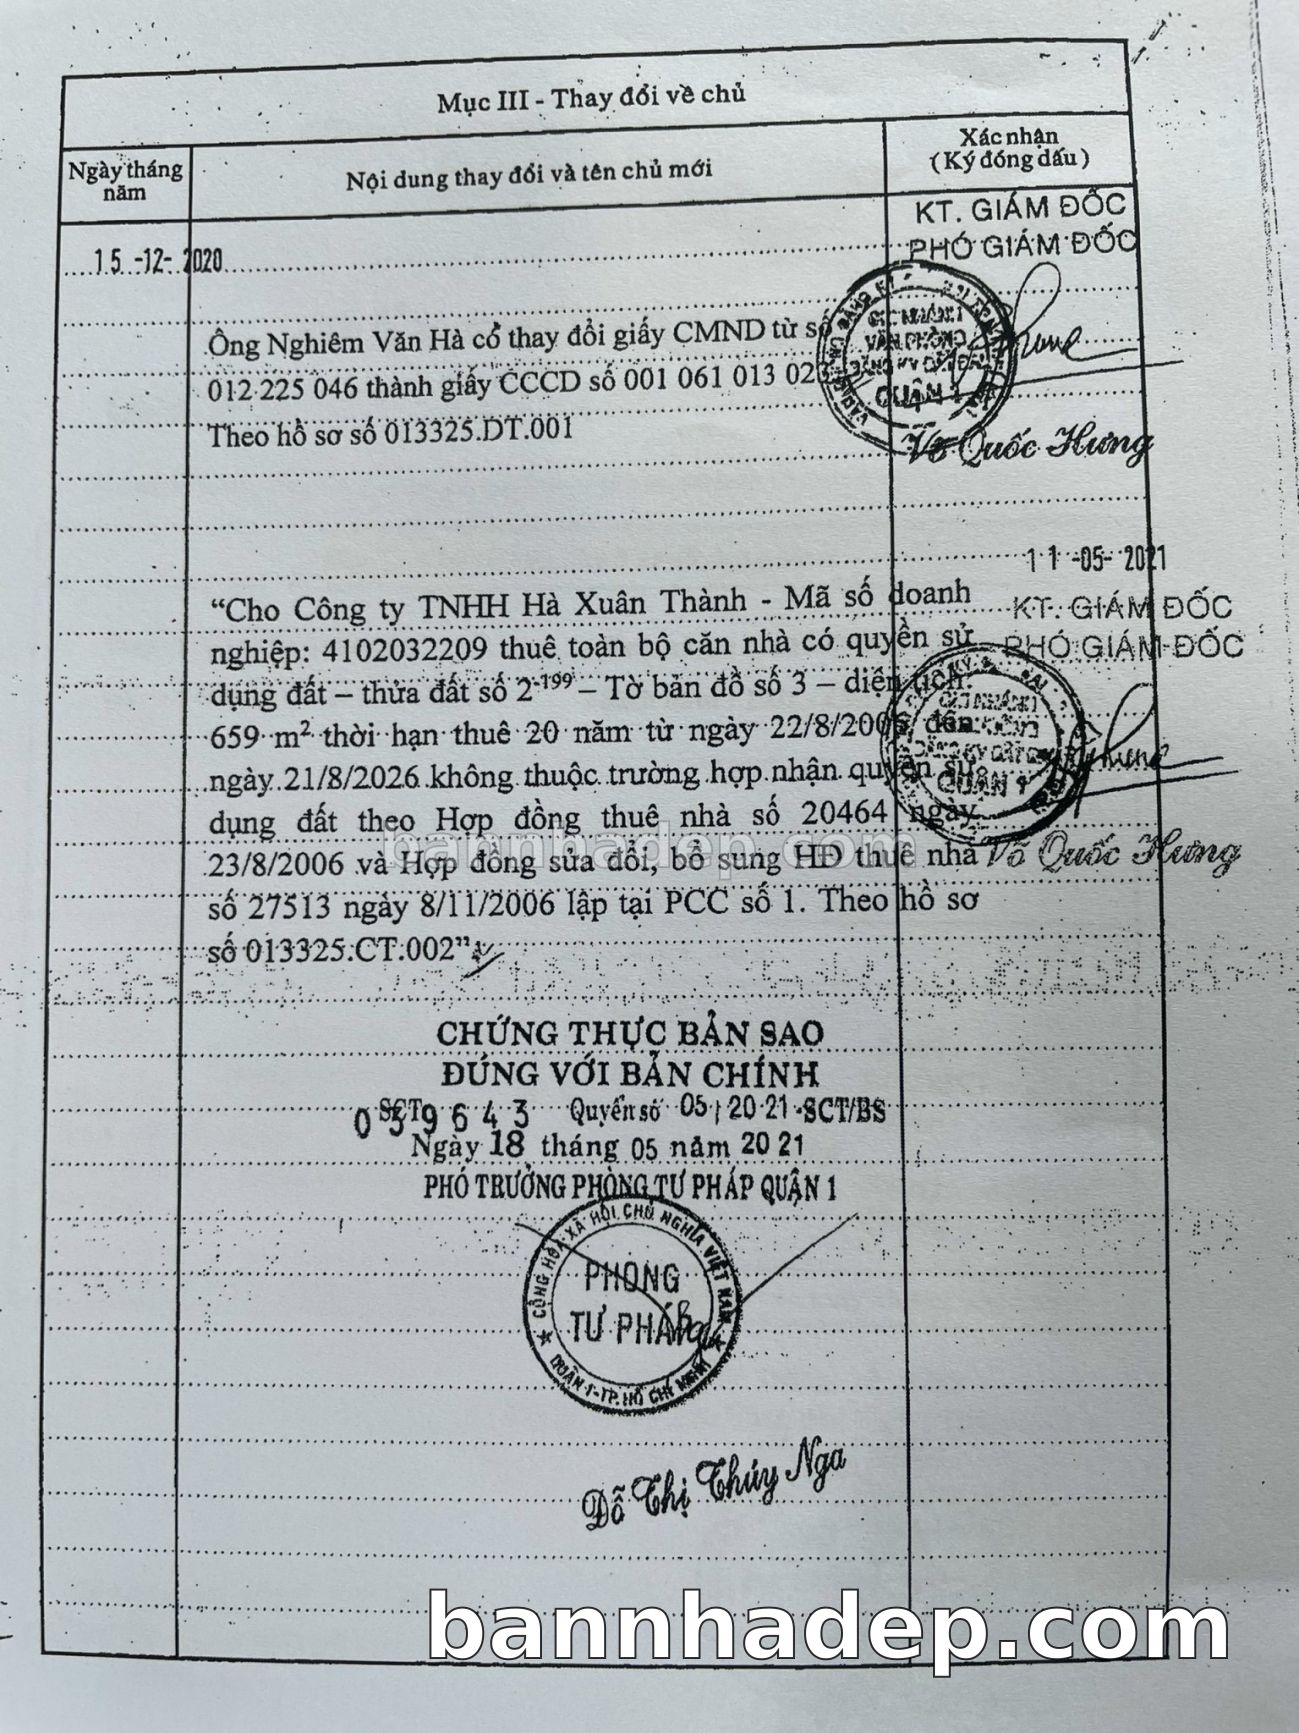 Mục III - Thay đổi về chủ
Ngày tháng năm
Nội dung thay đổi và tên chủ mới
Xác nhận
(Ký đóng dấu)
15 -12- 2020
KT. GIÁM ĐỐC
PHÓ GIÁM ĐỐC
Ông Nghiêm Văn Hà có thay đổi giấy CMND từ số
012 225 046 thành giấy CCCD số 001 061 013 023
Theo hồ sơ số 013325.DT.001
CHI NHÁNH
VĂN PHÒNG
ĐĂNG KÝ ĐẤT ĐAI
QUẬN 1
Võ Quốc Hưng
11 -05- 2021
KT. GIÁM ĐỐC
PHÓ GIÁM ĐỐC
“Cho Công ty TNHH Hà Xuân Thành - Mã số doanh
nghiệp: 4102032209 thuê toàn bộ căn nhà có quyền sử
dụng đất – thửa đất số 2-199 – Tờ bản đồ số 3 – diện tích:
659 m² thời hạn thuê 20 năm từ ngày 22/8/2006 đến
ngày 21/8/2026 không thuộc trường hợp nhận quyền sử
dụng đất theo Hợp đồng thuê nhà số 20464 ngày
23/8/2006 và Hợp đồng sửa đổi, bổ sung HĐ thuê nhà
số 27513 ngày 8/11/2006 lập tại PCC số 1. Theo hồ sơ
số 013325.CT.002”
CHI NHÁNH
ĐĂNG KÝ ĐẤT ĐAI
QUẬN 1
Võ Quốc Hưng
bannhadep.com
CHỨNG THỰC BẢN SAO
ĐÚNG VỚI BẢN CHÍNH
SCT 039643 Quyển số 05/2021-SCT/BS
Ngày 18 tháng 05 năm 2021
PHÓ TRƯỞNG PHÒNG TƯ PHÁP QUẬN 1
CỘNG HÒA XÃ HỘI CHỦ NGHĨA VIỆT NAM
PHÒNG
TƯ PHÁP
QUẬN 1-TP. HỒ CHÍ MINH
Đỗ Thị Thúy Nga
bannhadep.com